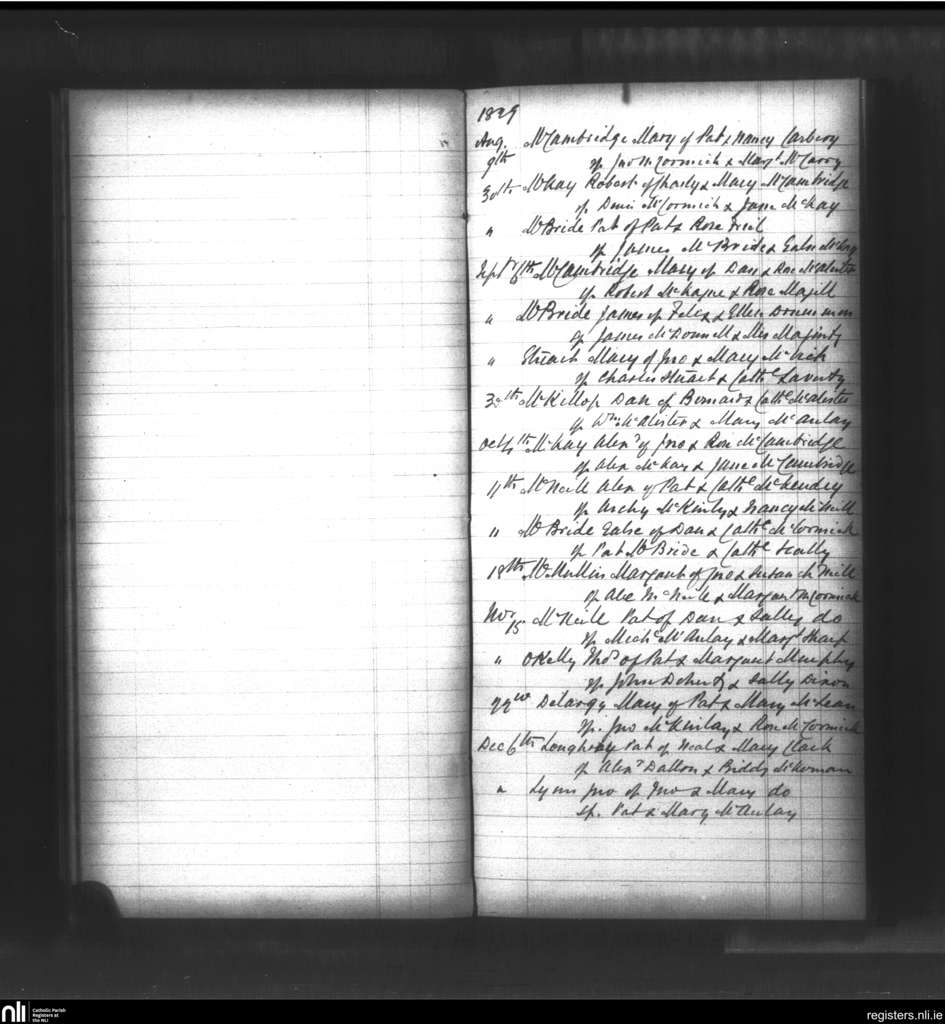 1829
Aug. McCambridge Mary of Pat & Nancy Carbery
9th sp Jno McCormick & Margt McCarry
30th McKay Robert of Charly & Mary McCambridge
sp Denis McCormick & Jane McKay
" McBride Pat of Pat & Rose
sp James McBride &
Septr 6th McCambridge Mary of Dan & Rose McAlister
sp Robert McKagne & Rose Magill
" McBride James of Felix & Ellen
sp James McDonnell & Miss
" Stuart Mary of Jno & Mary
sp Charles Stuart & Cathe Laverty
30th McKillop Dan of Bernard & Cathe McAlister
sp Wm McAlister & Mary McAulay
Oct 4th McKay Alexr of Jno & Rose McCambridge
sp Alex McKay & Jane McCambridge
11th McNeill Alex of Pat & Cathe McKendry
sp Archy McKinly & Nancy McNeill
" McBride Ealse of Dan & Cathe McCormick
sp Pat McBride & Cathe Scally
18th McMullin Margaret of Jno & Susan McNeill
sp Alex McNeill & Margaret McCormick
Nov 15 McNeile Pat of Dan & Sally do
sp Michl McAulay & Margt Sharp
" OKelly Thos of Pat & Margaret Murphy
sp John Doherty & Sally Dixon
22nd Delargy Mary of Pat & Mary McLean
sp. Jno McKinlay & Rose McCormick
Dec 6th Loughrey Pat of Neal & Mary Clark
sp Alexr Dallon & Biddy McKernan
" Lynn Jno of Jno & Mary do
sp. Pat & Mary McAulay
nli
Catholic Parish
Registers at
the NLI
registers.nli.ie